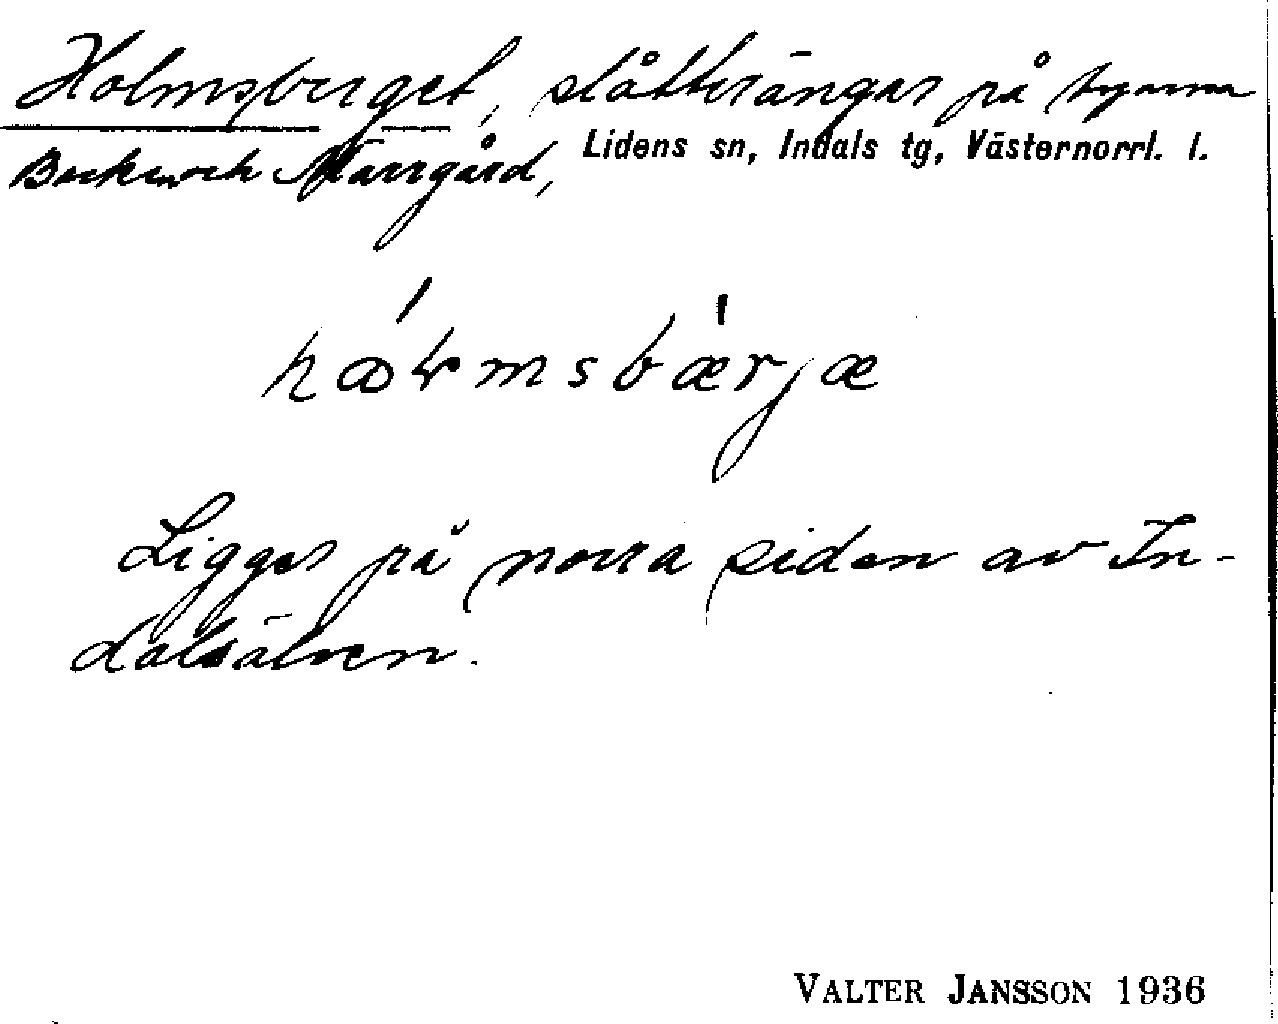 Holmsberget, slåtterängar på byarna
Backen och Norrgård, Lidens sn, Indals tg, Västernorrl. l.
Ligger på norra sidan av In-
dalsälven.
VALTER JANSSON 1936